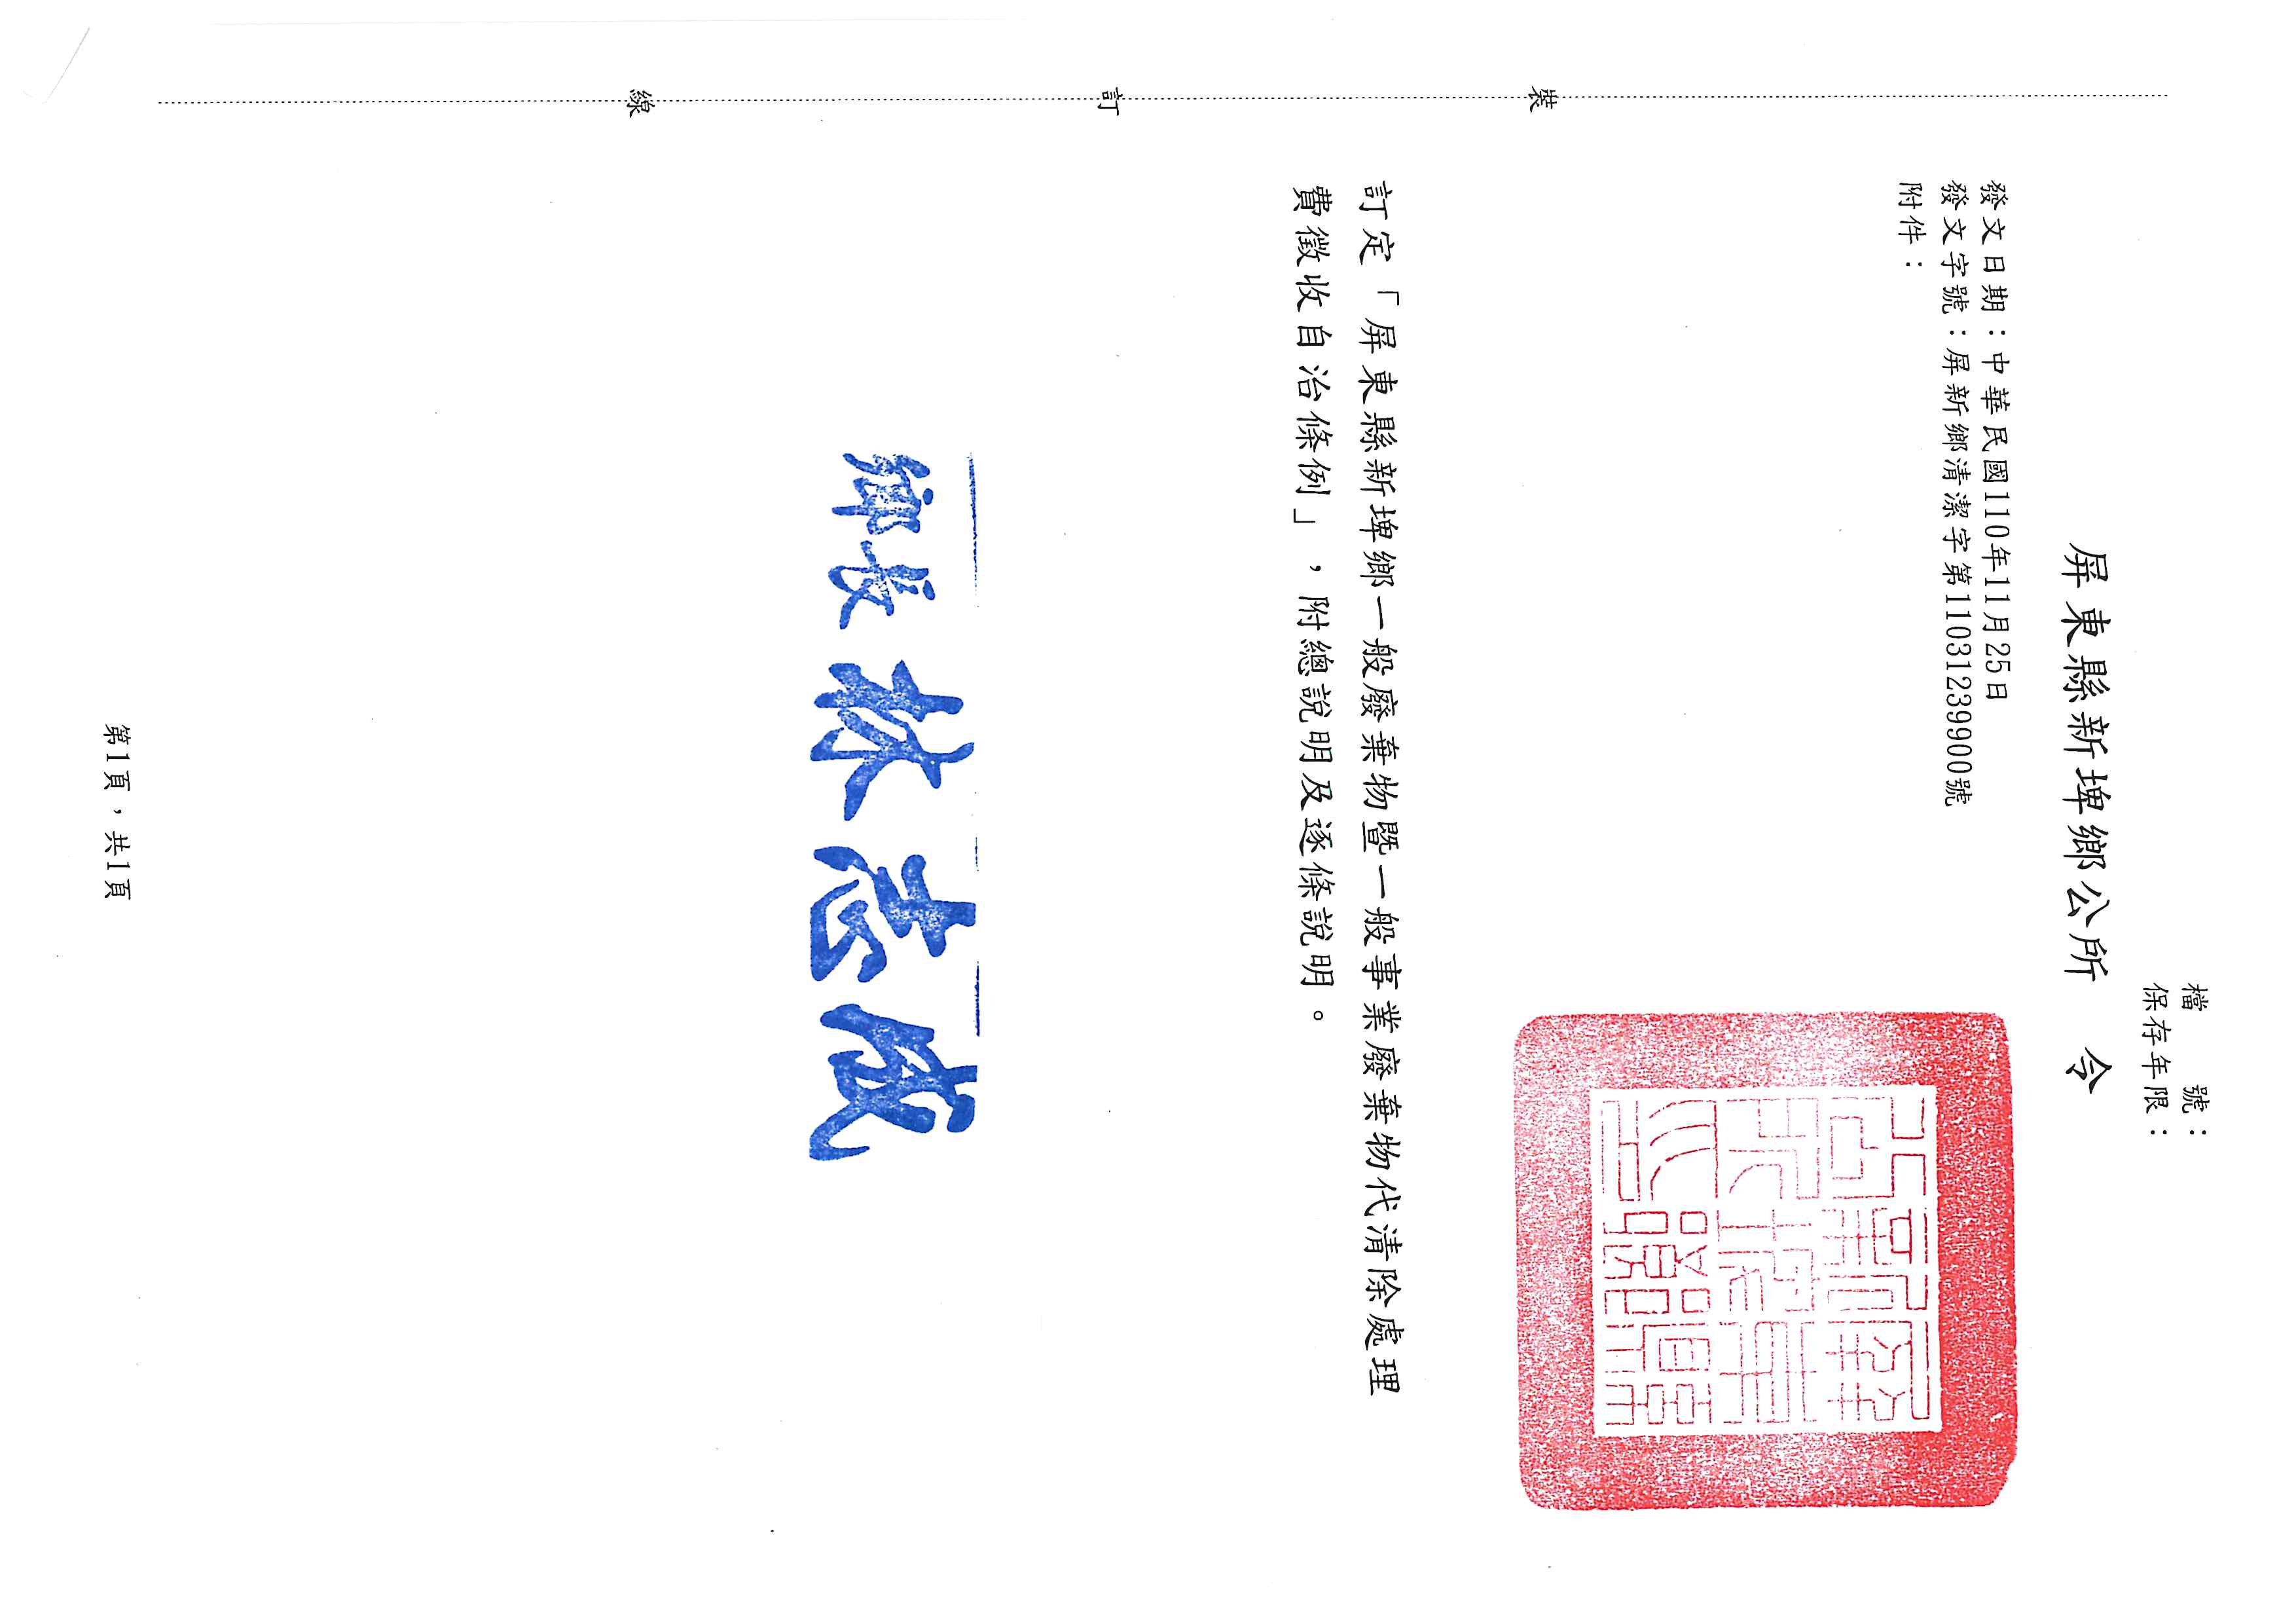 檔　　號：
保存年限：
屏東縣新埤鄉公所　令
發文日期：中華民國110年11月25日
發文字號：屏新鄉清潔字第11031239900號
附件：
訂定「屏東縣新埤鄉一般廢棄物暨一般事業廢棄物代清除處理
費徵收自治條例」，附總說明及逐條說明。
鄉長 林志成
裝
訂
線
第1頁，共1頁